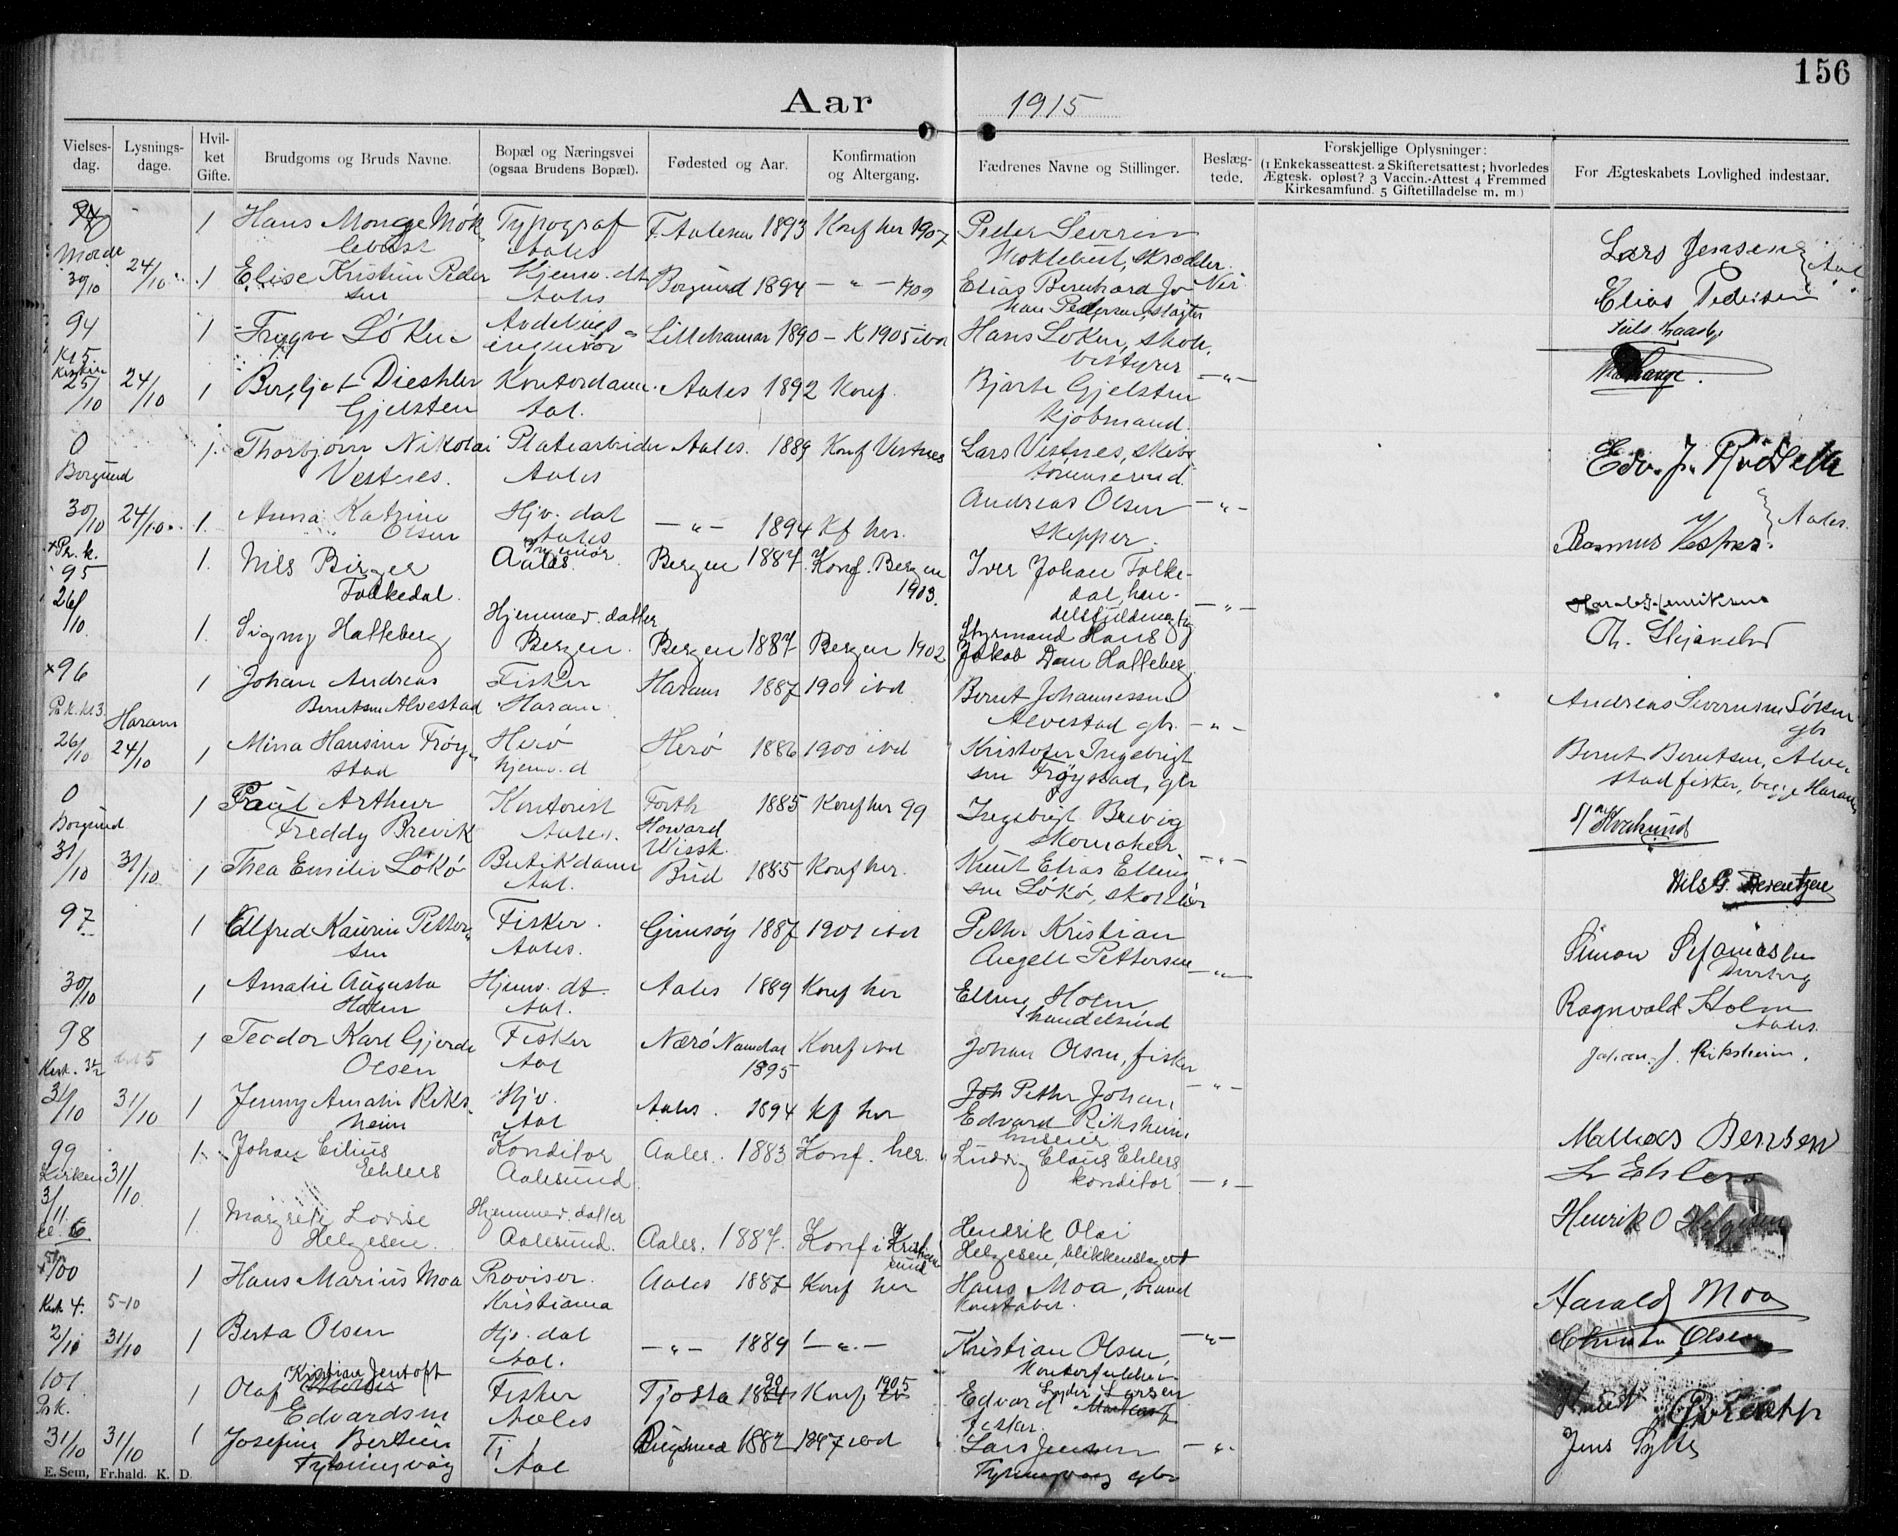 156
Aar 1915
Vielses-dag. Lysnings-dage. Hvil-ket Gifte. Brudgoms og Bruds Navne. Bopæl og Næringsvei (ogsaa Brudens Bopæl). Fødested og Aar. Konfirmation og Altergang. Fædrenes Navne og Stillinger. Beslæg-tede. Forskjellige Oplysninger: (1 Enkekasseattest. 2 Skifteretsattest; hvorledes Ægtesk. opløst? 3 Vaccin.-Attest 4 Fremmed Kirkesamfund. 5 Giftetilladelse m. m.) For Ægteskabets Lovlighed indestaar.
1 Hans Monge Møk- Typograf F. Aalesun 1893 Konf her 1907 Peder Severin
lebust Aales Møklebust, skrædder. Lars Jensen
30/10 24/10 1 Elise Kristine Peder Hjemv. dt Borgund 1894 — " — 1909 Elias Bernhard Jo Nei
sen Aales han Pedersen, slagter Elias Pedersen
94 1 Trygve Løken Avdelings- Lillehamar 1890 – K 1905 ibd Hans Løken, skole
Kl 5. ingeniør bestyrer
25/10 24/10 1 Bergljot Dieshler Kontordame Aales 1892 Konf. Bjarte Gjelsten — " —
Gjelsten Aal. Kjøbmand.
0 1. Thorbjørn Nikolai Platearbeider Aales. 1889 Konf Vestnes Lars Vestnes, skibs
Borgund Vestnes. Aales tømmermd. Edv. J. Rødseth
30/10 24/10. 1. Anna Katrine Hjv. dat — " — 1894 Kf her. Andreas Olsen — " —
Olsen Aales skipper. Rasmus Vestnes. Aales.
×Pr. k. 95 1. Nils Birger Ingeniør Aales. Bergen 1887. Konf. Bergen Iver Johan Folke-
Folkedal. 1903. dal, han-
26/10 delsfuldmægtig — " —
1. Signy Halleberg Hjemmev. datter Bergen. Bergen 1887 Bergen 1902 Styrmand Hans
Jakob Dam Halleberg
×96 1 Johan Andreas Fisker Harams 1887 1901 ibd Bernt Johannessen Andreas Severinsen Søken
Haram Berntsen Alvestad Haram Alvestad gbr. — " — gbr
26/10 24/10 1 Mina Hansine Frøy- Herø Herø 1886 1900 ibd Kristofer Ingebrigt Bernt Berntsen, Alve-
stad hjemv. d sen Frøystad, gbr stad fisker, begge Haram
0 1 Paul Arthur Kontorist Forth 1885 Konf her 99 Ingebrigt Brevig
Borgund Freddy Brevik Aales. Howard Wissk. Skomaker
31/10 31/10 1 Thea Emilie Løkø Butikdame Bud 1885 Konf her. Knut Elias Elling — " —
Aal. sen Løkø, skolelær Nils G. Berentzen
97 1 Alfred Kaurin Petter- Fisker. Gimsøy 1887 1901 ibd Petter Kristian
sen Aales. Angell Pettersen — " —
30/10 1 Amalie Augusta Hjemv. dt. Aales 1889 Konf her Elling Holm
Holm Aal. handelsmd Ragnvald Holm Aales.
98 1 Teodor Karl Gjerde Fisker Nærø Namdal Konf ibd Johan Olsen, fisker
Olsen Aal 1895 Johan J. Riksheim.
31/10 31/10 1 Jenny Amalie Riks- Hjv. Aales. 1894 Kf her Petter Johan — " —
heim Aal Edvard Riksheim
99 1. Johan Cilius Konditor Aales. 1883 Konf. her. Ludvig Claus Ehlers Mathias Bensen
Kirken 31/10 Ehlers Aalesund konditor — " — L. Ehlers
3/11 kl. 6 1. Margrete Lovise Hjemmev. datter Aales. 1887. Konf i Kristiansund Hendrik Olai Henrik O Helgesen
Helgesen. Aalesund. Helgesen, blikkenslager
100 1 Hans Marius Moa Provisor. Aales 1887 Konf her Hans Moa, brand
Kirk 4. 5-10 Kristiania konstabel. Harald Moa
2/11 31/10 1 Berta Olsen Hjv. dat — " — 1889 — " — Kristian Olsen, — " —
Aal. Olsen
101 1 Olaf Kristian Jentoft Fisker Tjøtta Konf 1905 Edvard Peder Larsen
Edvardsen Aales fisker.
31/10 31/10 1 Josefine Bertine Aal 1882 1897 ibd Lars Jensen — " — Jens Sylte
gbr
E. Sem, Fr.hald. K. D.